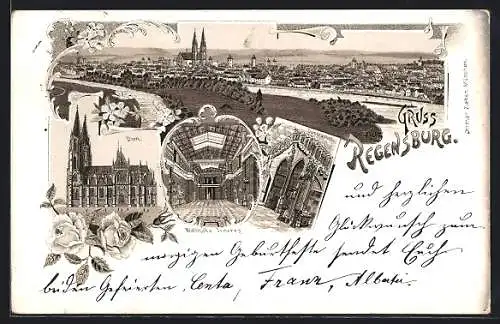 GRUSS
REGENSBURG.
Dom.
Walhalla Inneres
Ottmar Zieher, München.
und herzlichen
Glückwunsch zum
morgigen Geburtsfeste sendet Euch
beiden Gefeierten, Centa, Franz, Albertin.